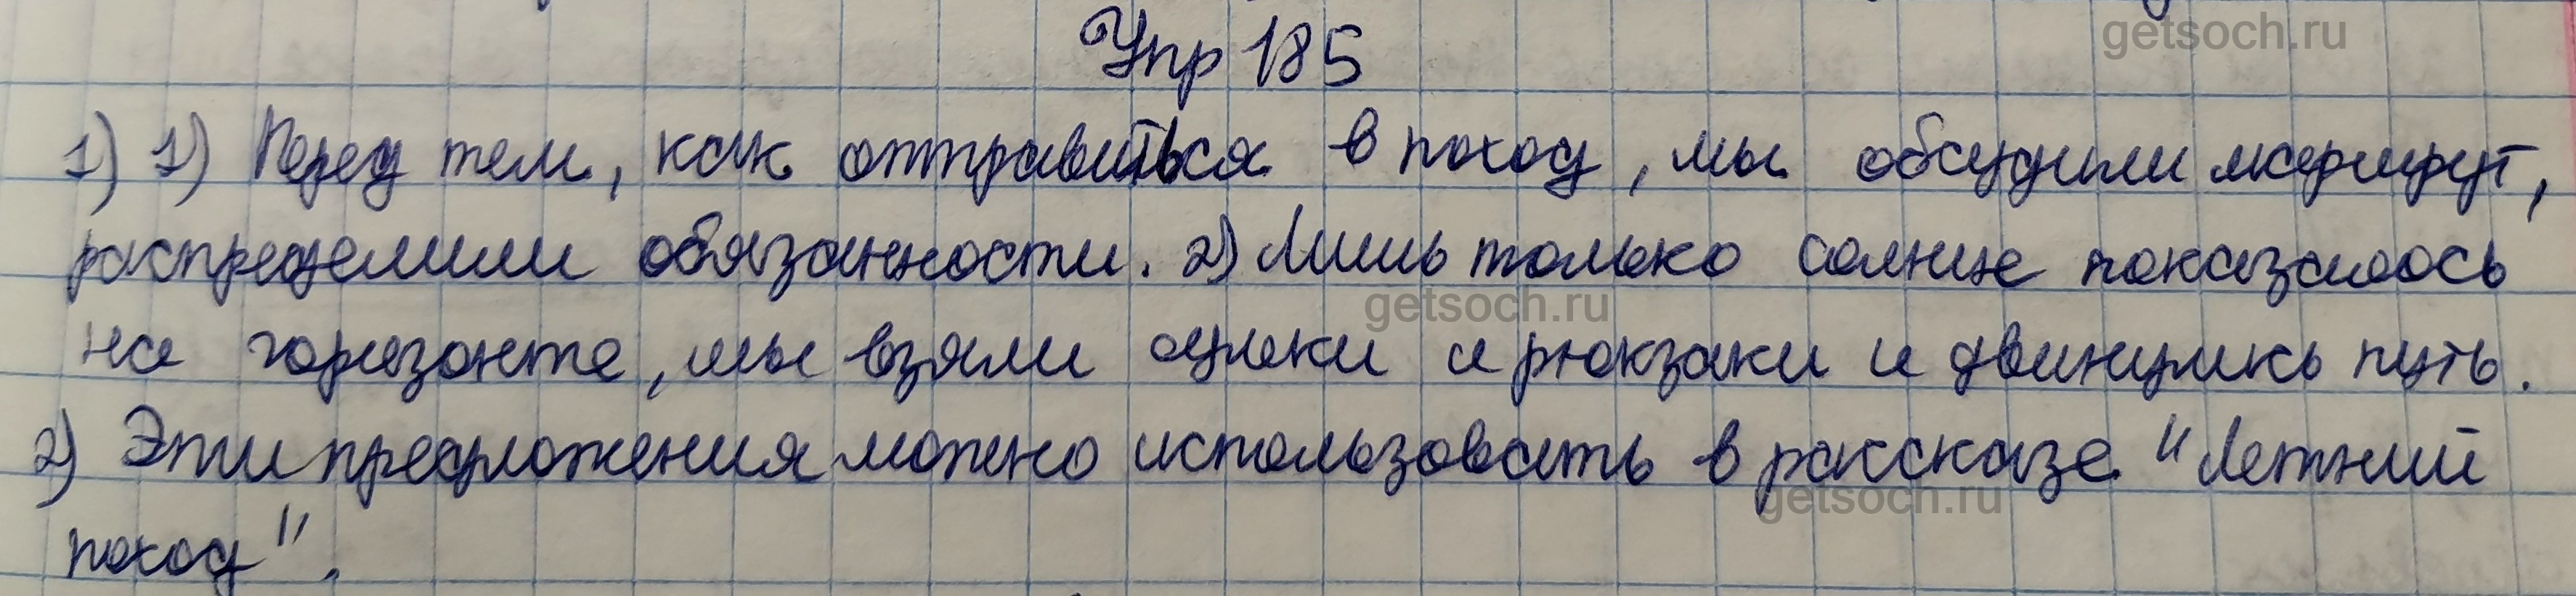 Упр 185
getsoch.ru
1) 1) Перед тем, как отправиться в поход, мы обсудили маршрут,
распределили обязанности. 2) Лишь только солнце показалось
getsoch.ru
на горизонте, мы взяли удочки и рюкзаки и двинулись путь.
2) Эти предложения можно использовать в рассказе "Летний
getsoch.ru
поход".